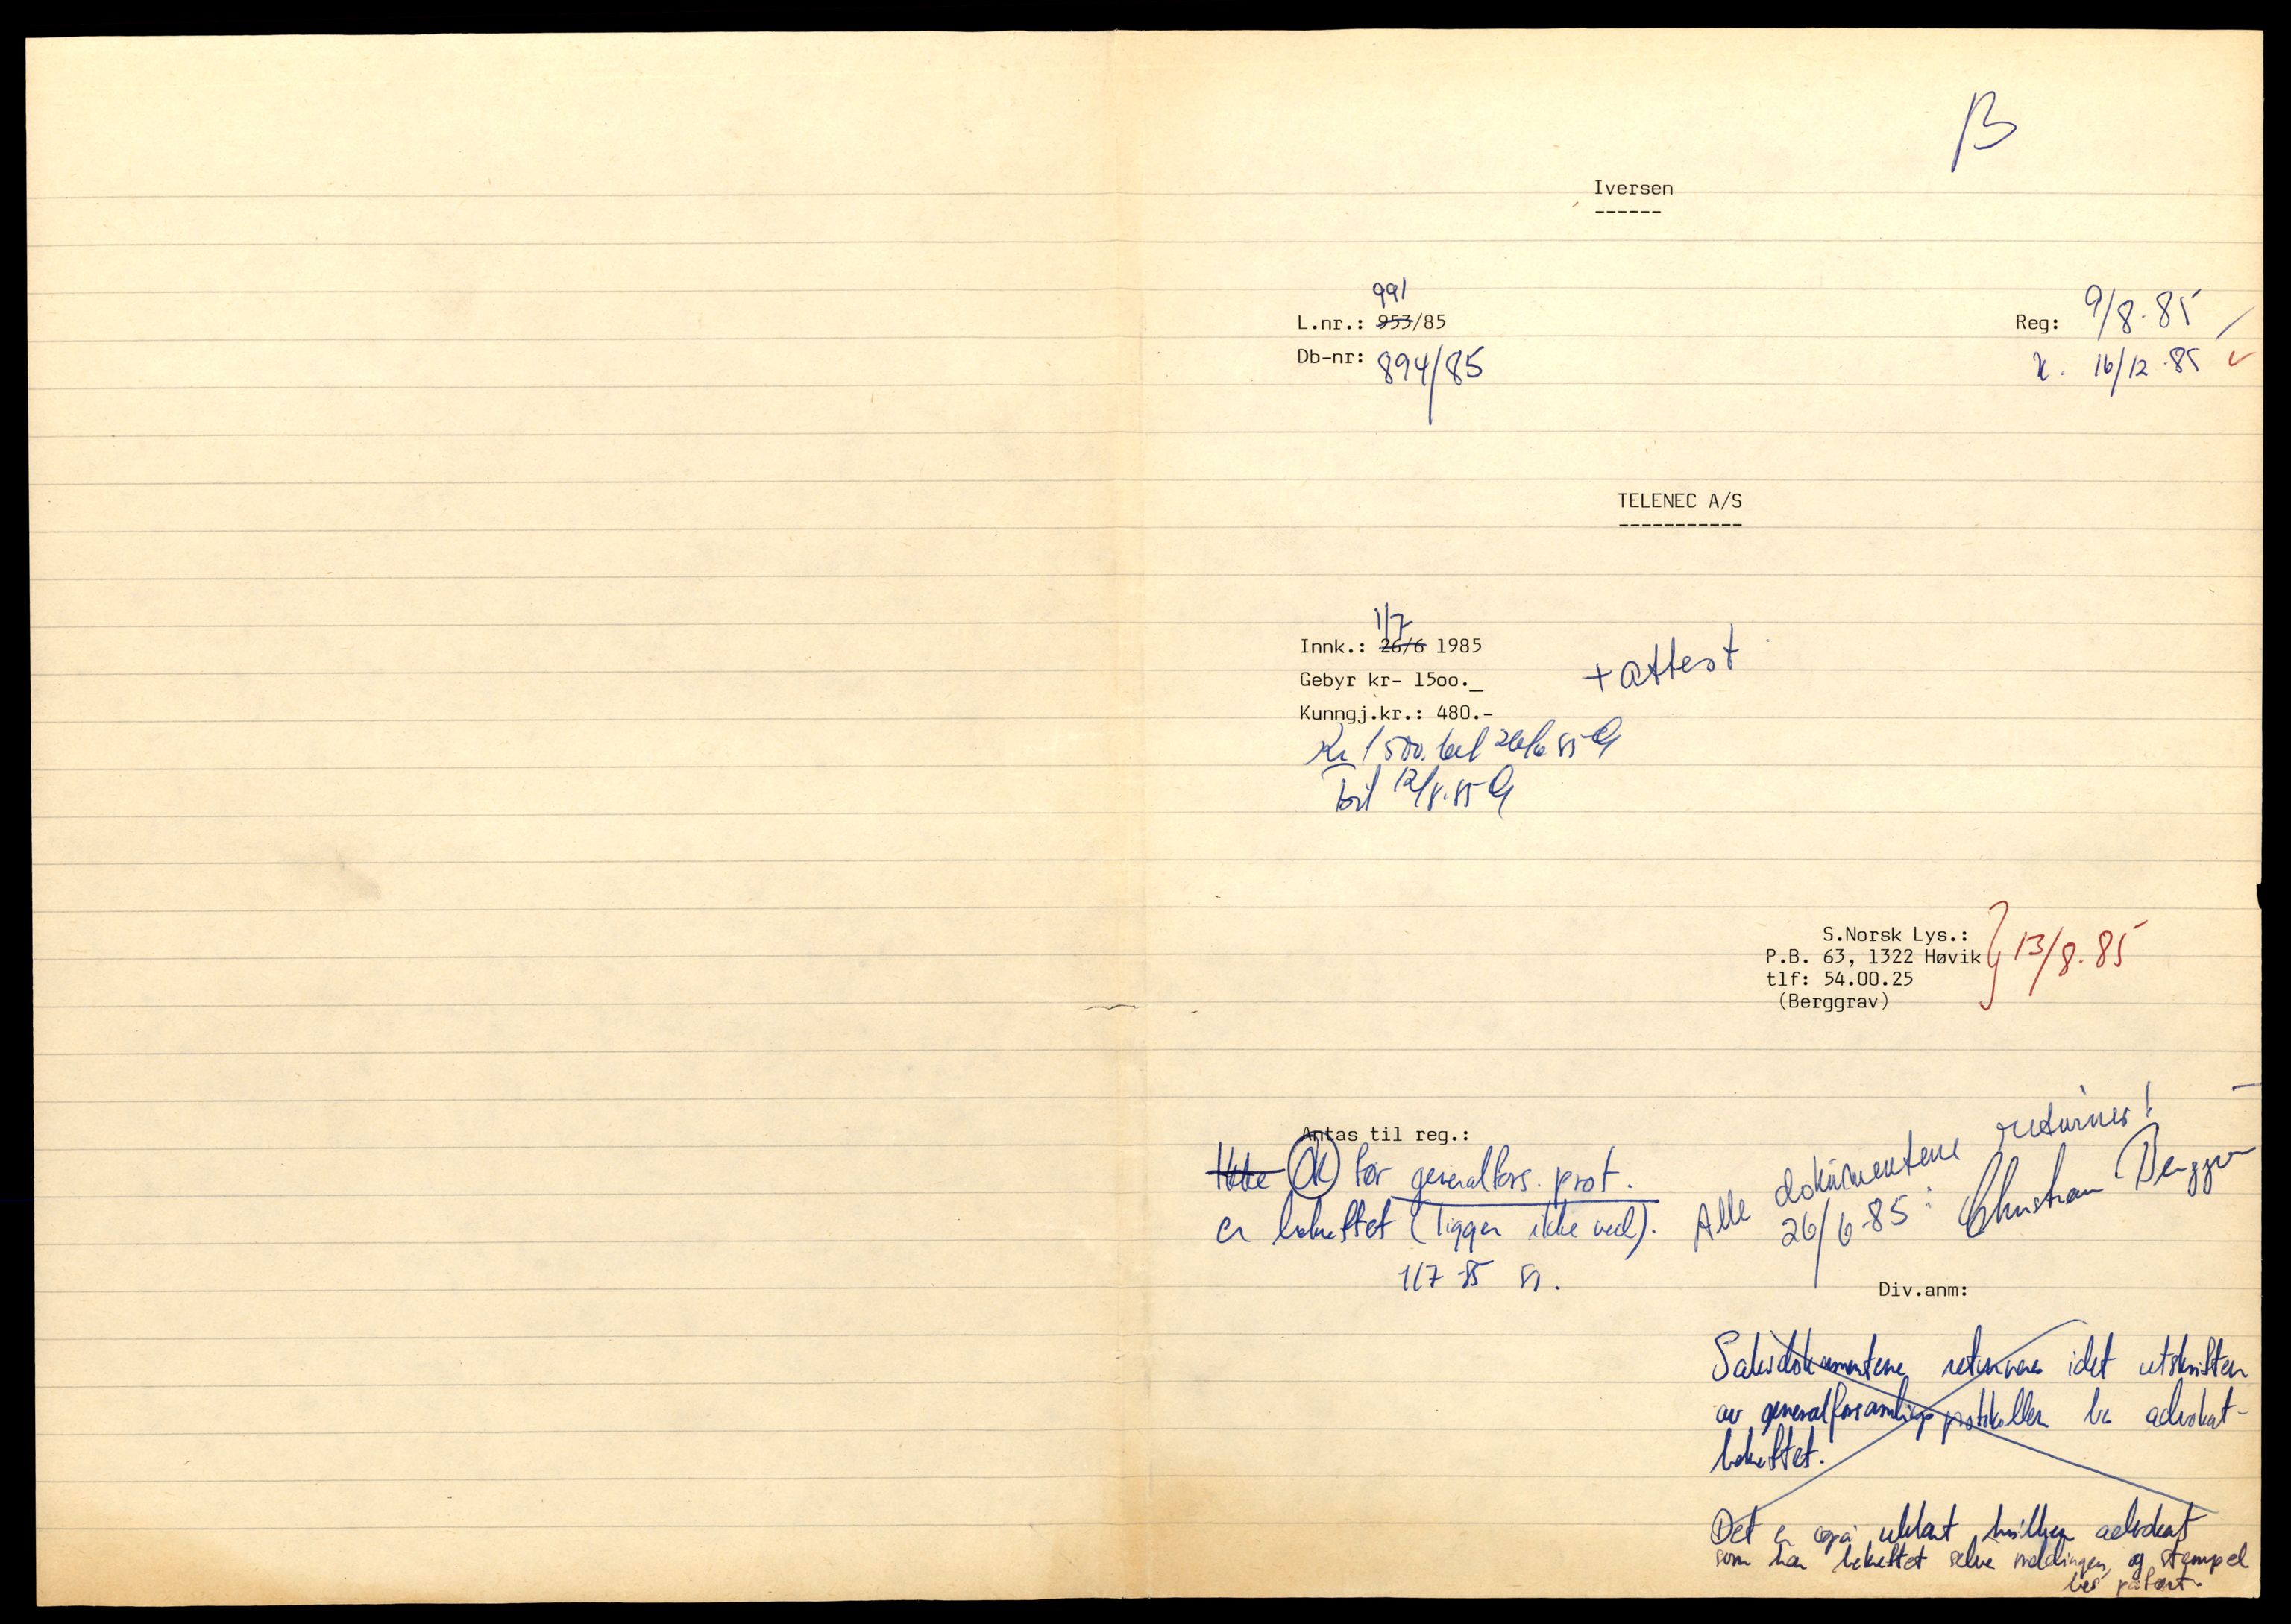 B
Iversen
991
L.nr.: 953/85
Reg: 9/8-85
Db-nr: 894/85
K. 16/12-85
TELENEC A/S
1/7
Innk.: 26/6 1985
+ attest
Gebyr kr- 15oo._
Kunngj.kr.: 480.-
Kr 1500. bet 26/6 85
12/8.85
S.Norsk Lys.:
P.B. 63, 1322 Høvik 13/8.85
tlf: 54.00.25
(Berggrav)
Antas til reg.:
Ikke OK før generalfors. prot.
er bekreftet (ligger ikke ved).
1/7 85
Alle dokumentene returnes!
26/6-85: Christian
Div.anm:
Saksdokumentene returneres idet utskriften
av generalforsamlingsprotokollen bes advokat-
bekreftet.
Det er også uklart hvilken advokat
som har bekreftet selve meldingen, og stempel
bes påført.